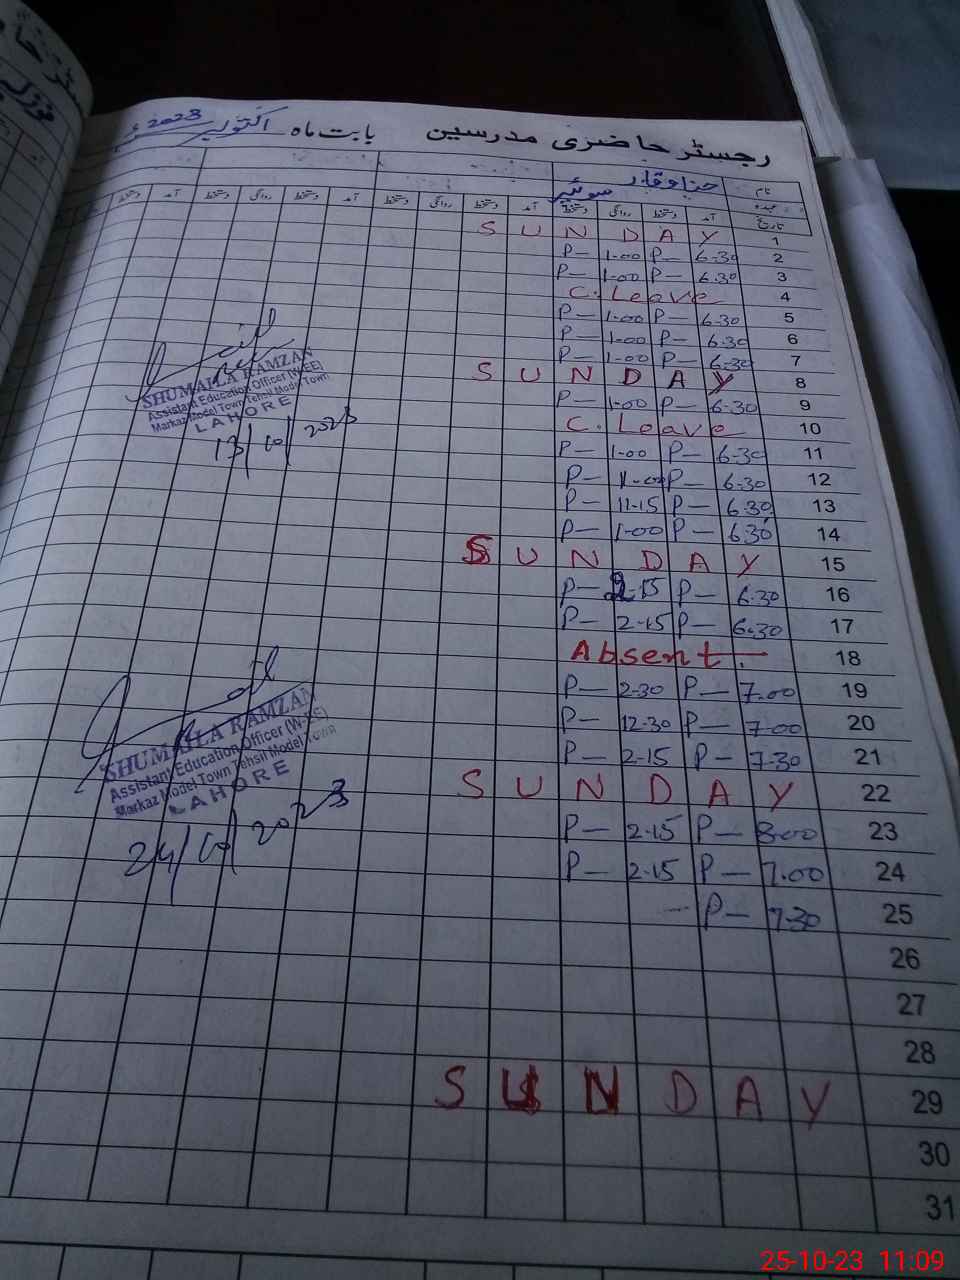 رجسٹر حاضری مدرسین بابت ماہ اکتوبر 2023ء
نام
عہدہ سوئپر
تاریخ آمد دستخط روانگی دستخط آمد دستخط روانگی دستخط آمد دستخط روانگی دستخط آمد دستخط
1 S U N D A Y
2 P— 1-00 P— 6-30
3 P— 1-00 P— 6.30
4 C. Leave
5 P— 1-00 P— 6-30
6 P— 1-00 P— 6.30
7 P— 1-00 P— 6-30
8 S U N D A Y
9 P— 1-00 P— 6-30
10 C. Leave
11 P— 1-00 P— 6-30
12 P— P— 6-30
13 P— 11-15 P— 6.30
14 P— 1-00 P— 6.30
15 S U N D A Y
16 P— 2-15 P— 6.30
17 P— 2-15 P— 6.30
18 Absent.
19 P— 2-30 P— 7.00
20 P— 12-30 P— 7-00
21 P— 2-15 P— 7-30
22 S U N D A Y
23 P— 2-15 P— 8-00
24 P— 2-15 P— 7.00
25 P— 7.30
26
27
28
29 S U N D A Y
30
31
SHUMAILA RAMZAN
Assistant Education Officer (W-EE)
Markaz Model Town Tehsil Model Town
LAHORE
13/10/2023
SHUMAILA RAMZAN
Assistant Education Officer (W-EE)
Markaz Model Town Tehsil Model Town
LAHORE
24/10/2023
25-10-23 11:09